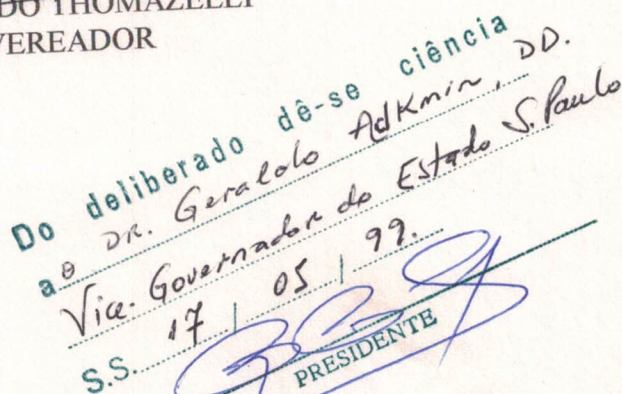 DO THOMAZELLI
VEREADOR
Do deliberado dê-se ciência
ao DR. Geraldo Adkmin, DD.
Vice. Governador do Estado S. Paulo
S.S. 17 | 05 | 99.
PRESIDENTE